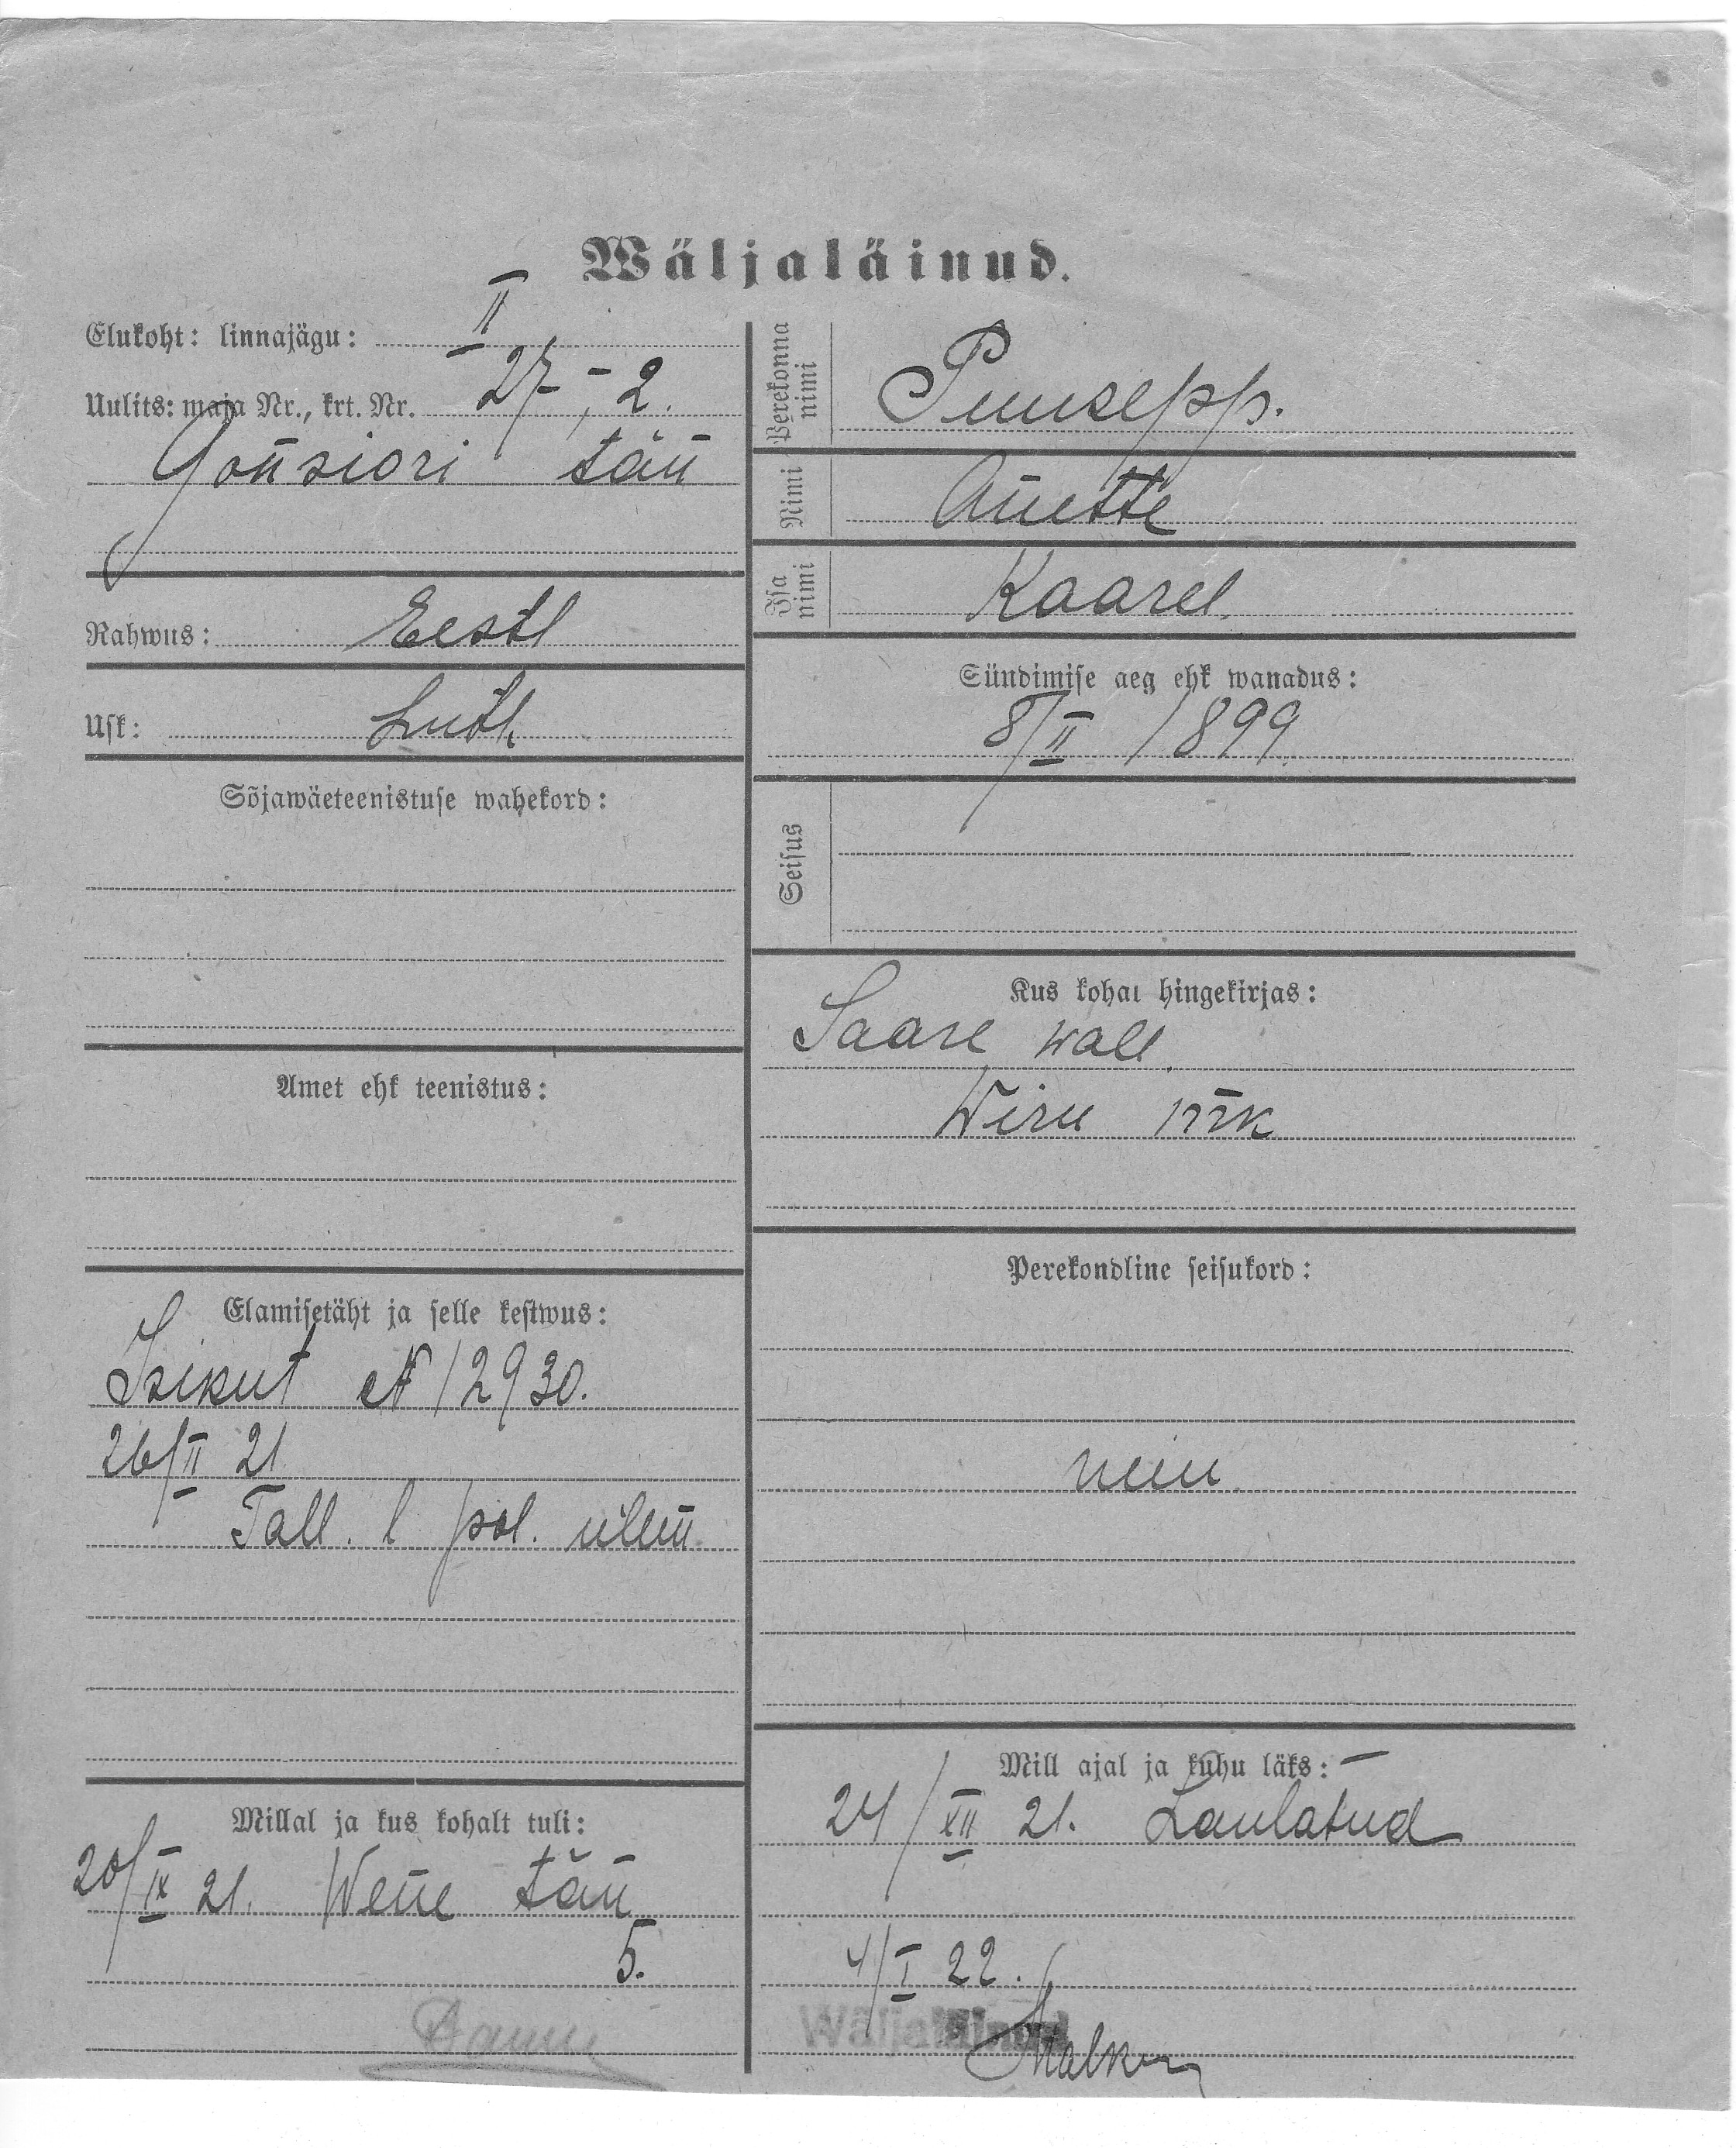 Wäljaläinud.
Elukoht: linnajägu: II
Uulits: maja Nr., krt. Nr. 27, - 2.
Gonsiori tän
Rahwus: Eestl
Usk: Luth.
Sõjawäeteenistuse wahekord:
Amet ehk teenistus:
Elamisetäht ja selle kestwus:
Isikut № 12930.
26/II 21
Tall. l pol. ülem
Millal ja kus kohalt tuli:
20/IX 21. Wene tän
5.
Perekonna nimi
Puusepp.
Nimi
Anette
Isa nimi
Kaarel
Sündimise aeg ehk wanadus:
8/II 1899
Seisus
Kus kohal hingekirjas:
Saare wall
Wiru mrk
Perekondline seisukord:
neiu
Mill ajal ja kuhu läks: —
24/XII 21. Laulatud
4/I 22.
Wäljaläinud